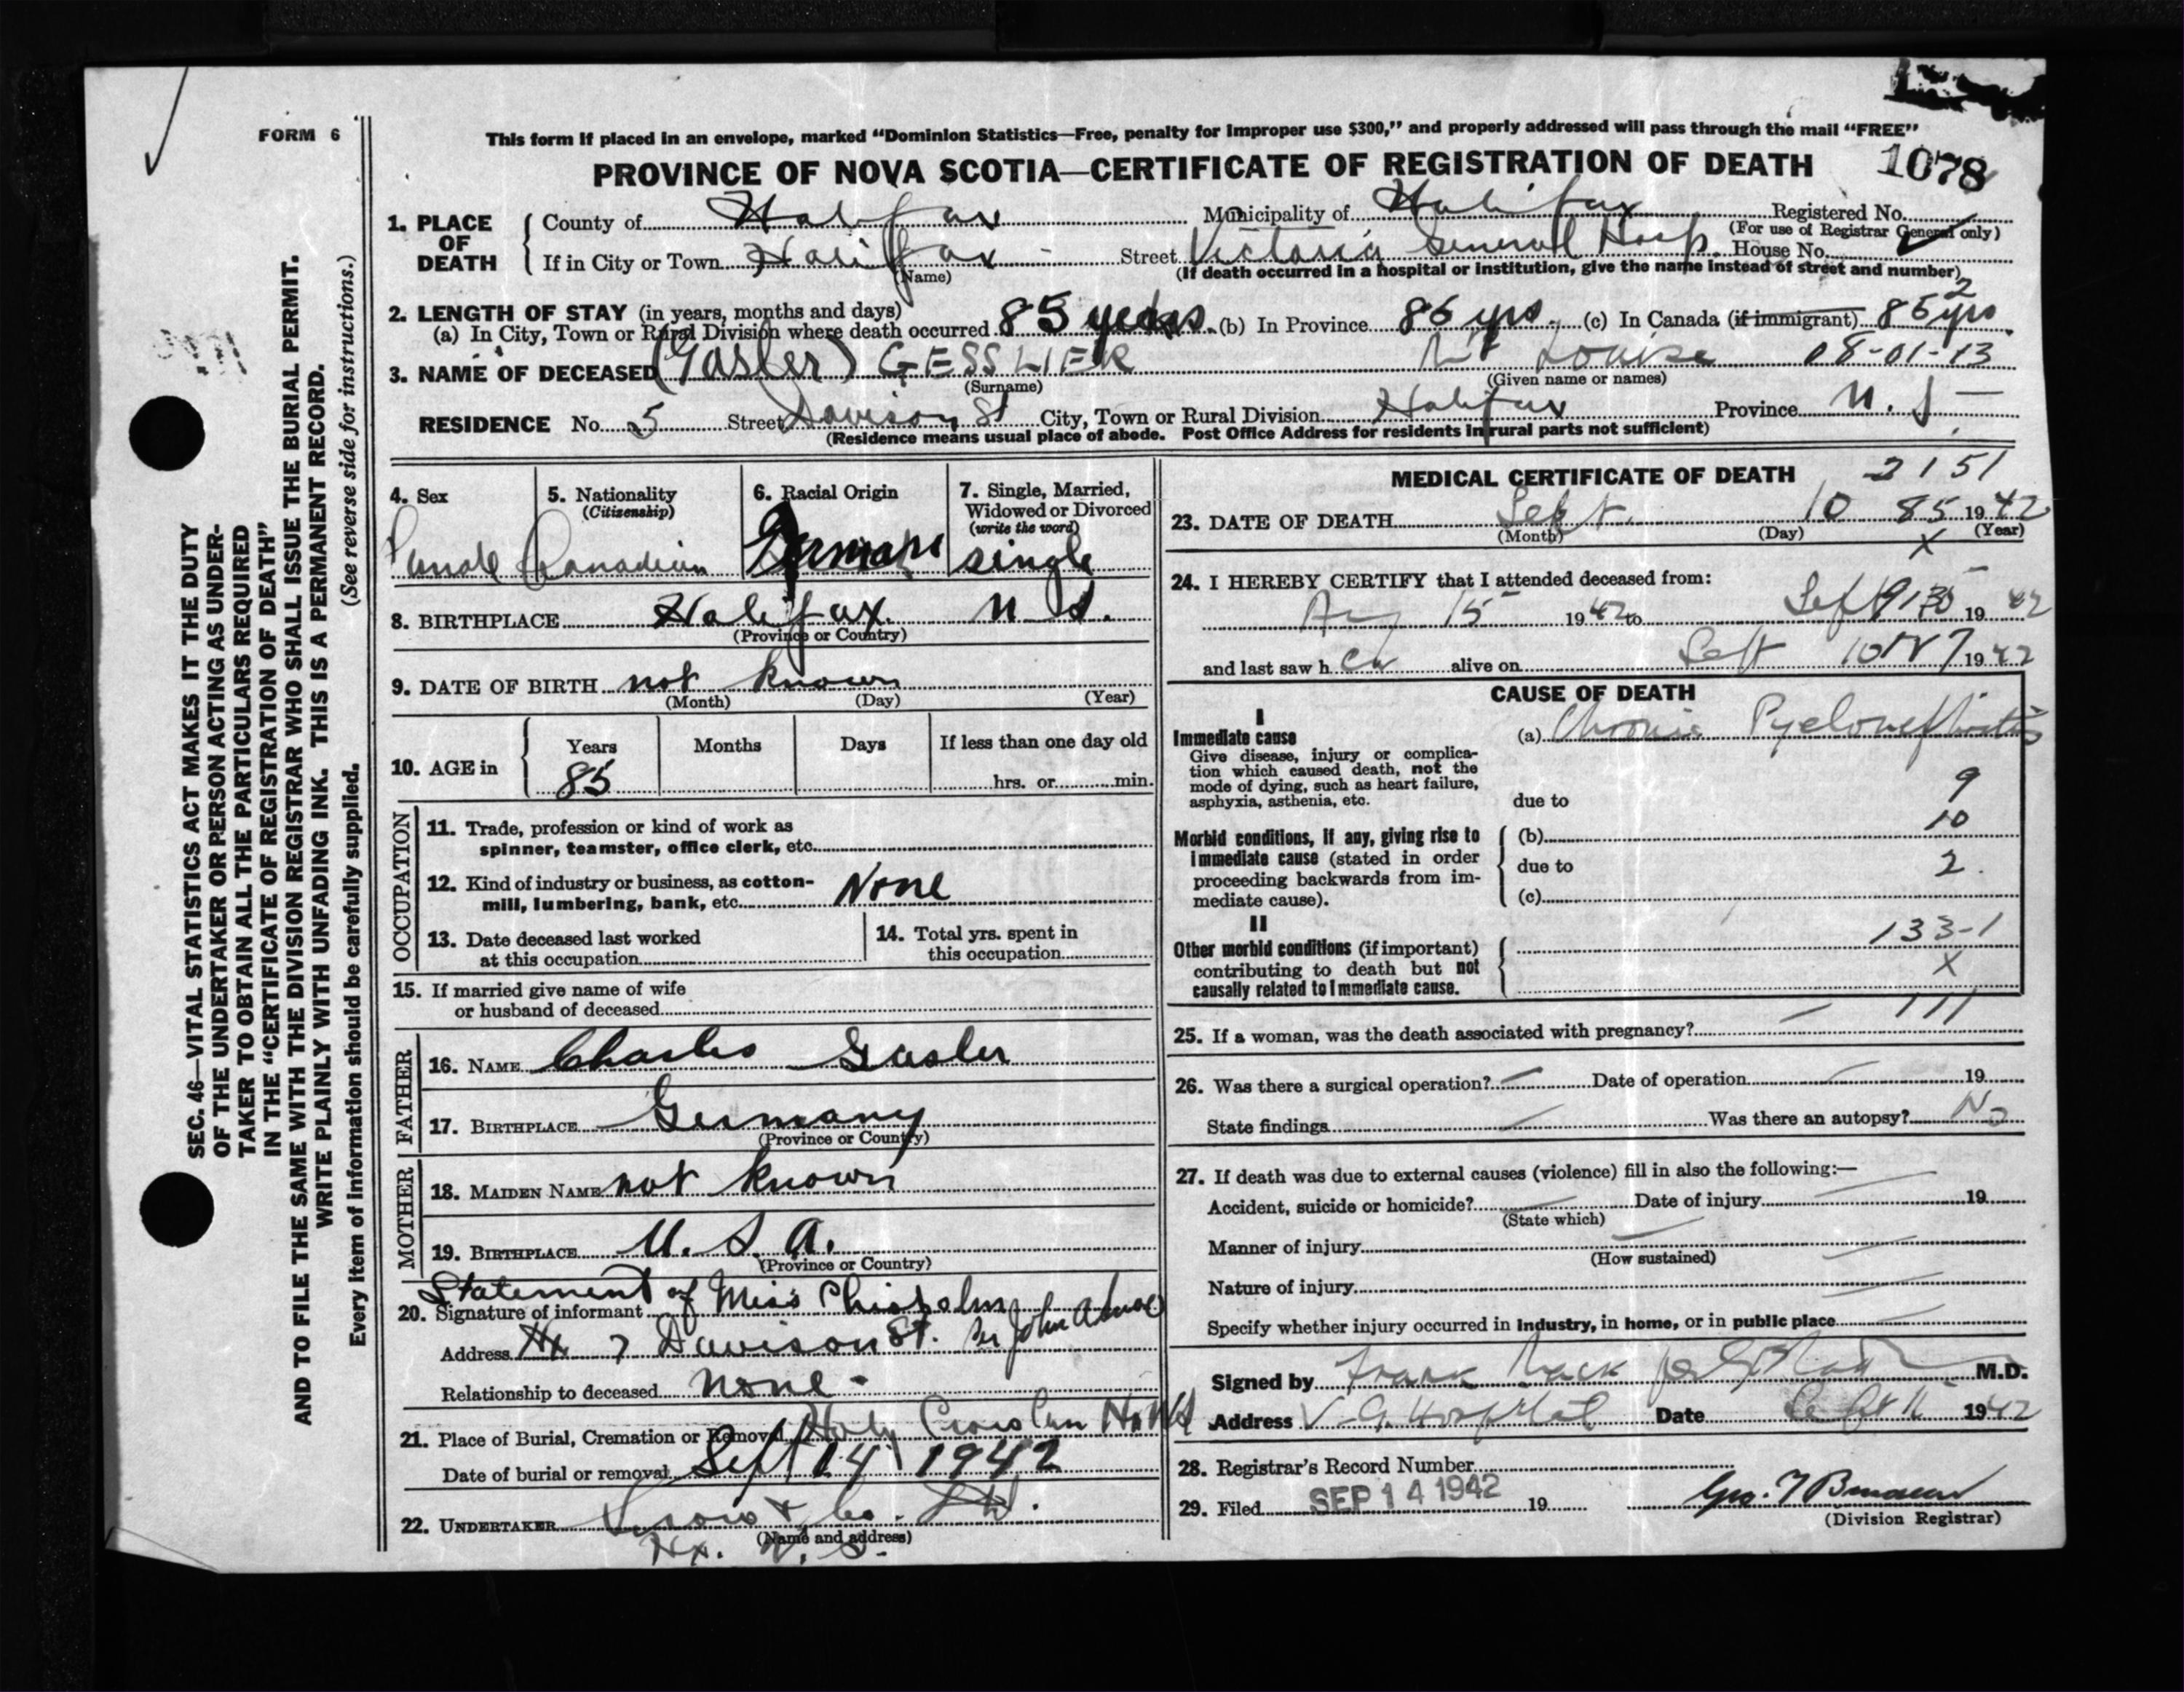 FORM 6
This form if placed in an envelope, marked "Dominion Statistics—Free, penalty for improper use $300," and properly addressed will pass through the mail "FREE"
PROVINCE OF NOVA SCOTIA—CERTIFICATE OF REGISTRATION OF DEATH 1078
1. PLACE OF DEATH
County of Halifax Municipality of Halifax Registered No.
(For use of Registrar General only)
If in City or Town Halifax Street Victoria General Hosp. House No.
(Name) (If death occurred in a hospital or institution, give the name instead of street and number)
2. LENGTH OF STAY (in years, months and days)
(a) In City, Town or Rural Division where death occurred 85 years (b) In Province 85 yrs. (c) In Canada (if immigrant) 85 yrs 2
3. NAME OF DECEASED (Gasler) GESSLIER Louise 08-01-13
(Surname) (Given name or names)
RESIDENCE No. 5 Street Davison St City, Town or Rural Division Halifax Province N. S.
(Residence means usual place of abode. Post Office Address for residents in rural parts not sufficient)
4. Sex
Female
5. Nationality
(Citizenship)
Canadian
6. Racial Origin
German
7. Single, Married,
Widowed or Divorced
(write the word)
single
8. BIRTHPLACE Halifax. N S.
(Province or Country)
9. DATE OF BIRTH not known
(Month) (Day) (Year)
10. AGE in
Years Months Days If less than one day old
85 hrs. or min.
OCCUPATION
11. Trade, profession or kind of work as
spinner, teamster, office clerk, etc.
12. Kind of industry or business, as cotton-
mill, lumbering, bank, etc. None
13. Date deceased last worked
at this occupation
14. Total yrs. spent in
this occupation
15. If married give name of wife
or husband of deceased
FATHER
16. NAME Charles Gasler
17. BIRTHPLACE Germany
(Province or Country)
MOTHER
18. MAIDEN NAME not known
19. BIRTHPLACE U. S. A.
(Province or Country)
Statement of Miss Chisholm
20. Signature of informant per John A
Address Hx 7 Davison St.
Relationship to deceased none -
21. Place of Burial, Cremation or Removal Holy Cross Cem Hx NS
Date of burial or removal Sept 14 1942
22. UNDERTAKER Snow & Co. Ltd.
(Name and address)
Hx. N. S.
MEDICAL CERTIFICATE OF DEATH 2151
23. DATE OF DEATH Sept. 10 85 1942
(Month) (Day) (Year)
X
24. I HEREBY CERTIFY that I attended deceased from:
Aug 15 1942 to Sept 1942
and last saw her alive on Sept 10 1942
CAUSE OF DEATH
I
Immediate cause
Give disease, injury or complica-
tion which caused death, not the
mode of dying, such as heart failure,
asphyxia, asthenia, etc.
(a) Chronic Pyelonephritis
9
due to
10
Morbid conditions, if any, giving rise to
immediate cause (stated in order
proceeding backwards from im-
mediate cause).
(b)
due to 2.
(c)
II
Other morbid conditions (if important)
contributing to death but not
causally related to immediate cause.
133-1
X
111
25. If a woman, was the death associated with pregnancy? —
26. Was there a surgical operation? — Date of operation — 19
State findings — Was there an autopsy? No
27. If death was due to external causes (violence) fill in also the following:—
Accident, suicide or homicide? — Date of injury — 19
(State which)
Manner of injury —
(How sustained)
Nature of injury —
Specify whether injury occurred in industry, in home, or in public place —
Signed by Frank Mack M.D.
Address V-G. Hospital Date Sept 11 1942
28. Registrar's Record Number
29. Filed SEP 14 1942 19
(Division Registrar)
SEC. 46—VITAL STATISTICS ACT MAKES IT THE DUTY
OF THE UNDERTAKER OR PERSON ACTING AS UNDER-
TAKER TO OBTAIN ALL THE PARTICULARS REQUIRED
IN THE "CERTIFICATE OF REGISTRATION OF DEATH"
AND TO FILE THE SAME WITH THE DIVISION REGISTRAR WHO SHALL ISSUE THE BURIAL PERMIT.
WRITE PLAINLY WITH UNFADING INK. THIS IS A PERMANENT RECORD.
Every item of information should be carefully supplied. (See reverse side for instructions.)